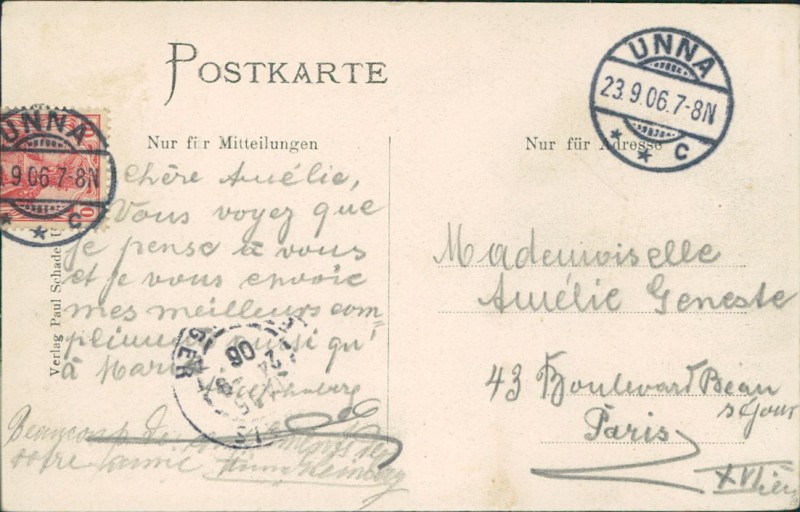 POSTKARTE
Nur für Mitteilungen
Nur für Adresse
UNNA
23.9.06.7-8N
* * C
UNNA
9.06.7-8N
* * C
Verlag Paul Schade
chère Amélie,
Vous voyez que
je pense à vous
et je vous envoie
mes meilleurs com-
pliments ainsi qu'
à Marie
Beaucoup de compliments de
votre amie
Mademoiselle
Amélie Geneste
43 Boulevard Beau
séjour
Paris
XVIème
06